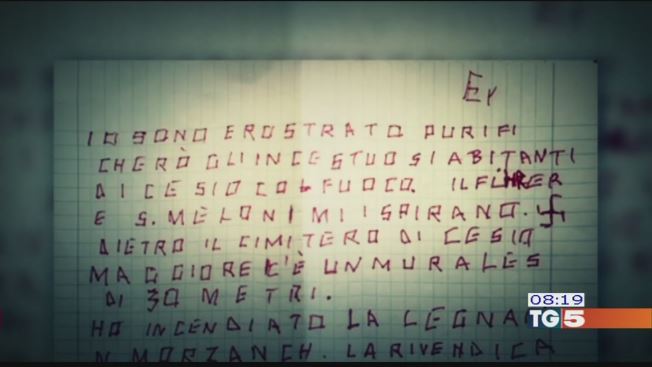 Er
IO SONO EROSTRATO PURIFI
CHERÒ GLI INCESTUOSI ABITANTI
DI CESIO COL FUOCO. IL FÜHRER
E S. MELONI MI ISPIRANO.
DIETRO IL CIMITERO DI CESIO
MAGGIORE C'È UN MURALES
DI 30 METRI.
HO INCENDIATO LA LEGNA
N MORZANCH. LA RIVENDICA
08:19
TG5